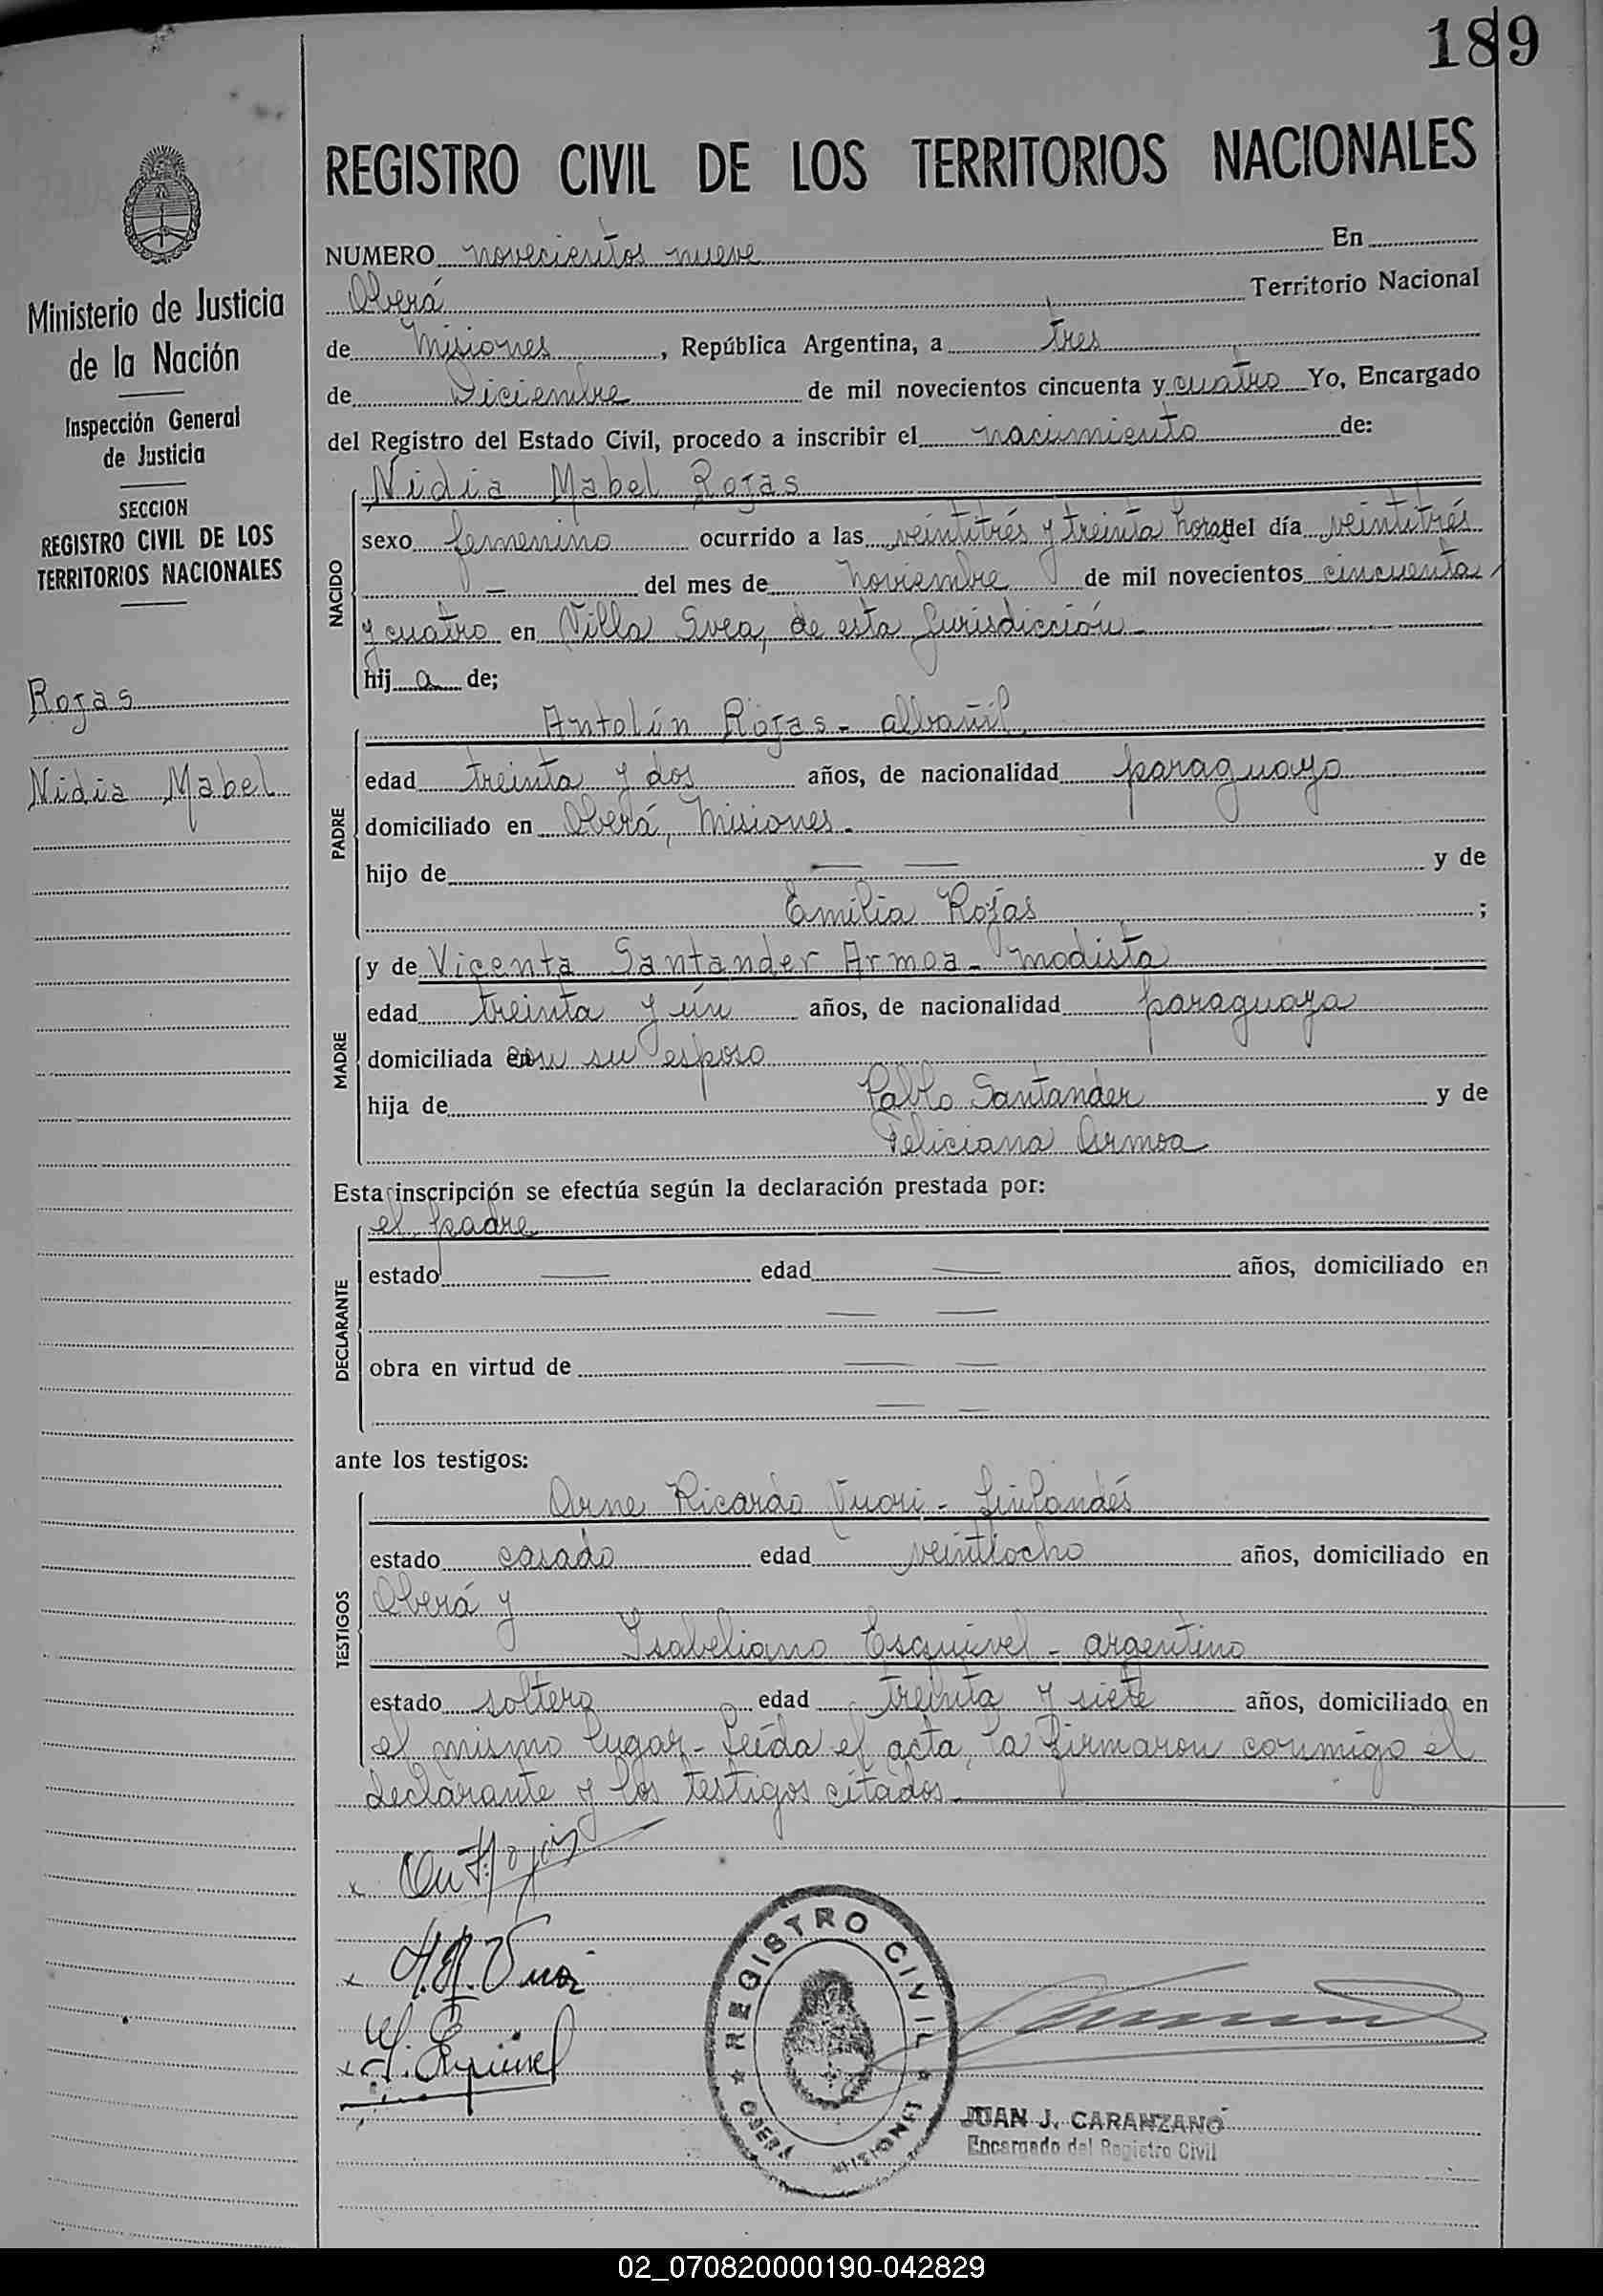 189
Ministerio de Justicia
de la Nación
Inspección General
de Justicia
SECCION
REGISTRO CIVIL DE LOS
TERRITORIOS NACIONALES
Rojas
Nidia Mabel
REGISTRO CIVIL DE LOS TERRITORIOS NACIONALES
NUMERO novecientos nueve En
Oberá Territorio Nacional
de Misiones, República Argentina, a tres
de Diciembre de mil novecientos cincuenta y cuatro Yo, Encargado
del Registro del Estado Civil, procedo a inscribir el nacimiento de:
NACIDO
Nidia Mabel Rojas
sexo femenino ocurrido a las veintitrés y treinta horas del día veintitrés
— del mes de noviembre de mil novecientos cincuenta
y cuatro en Villa Svea, de esta Jurisdicción-
hij a de;
PADRE
Antolín Rojas - albañil
edad treinta y dos años, de nacionalidad paraguayo
domiciliado en Oberá, Misiones.
hijo de — — y de
Emilia Rojas ;
MADRE
y de Vicenta Santander Armoa - modista
edad treinta y ún años, de nacionalidad paraguaya
domiciliada en con su esposo
hija de Pablo Santander y de
Feliciana Armoa
Esta inscripción se efectúa según la declaración prestada por:
DECLARANTE
el padre
estado — edad — años, domiciliado en
— —
obra en virtud de — —
— —
ante los testigos:
TESTIGOS
Arne Ricardo Vuori - finlandés
estado casado edad veintiocho años, domiciliado en
Oberá y
Isabeliano Esquivel - argentino
estado soltero edad treinta y siete años, domiciliado en
el mismo lugar- Leída el acta, la firmaron conmigo el
declarante y los testigos citados.
x Ant Rojas
x A.R. Vuori
x I. Esquivel
REGISTRO CIVIL
OBERÁ MISIONES
JUAN J. CARANZANO
Encargado del Registro Civil
02_070820000190-042829